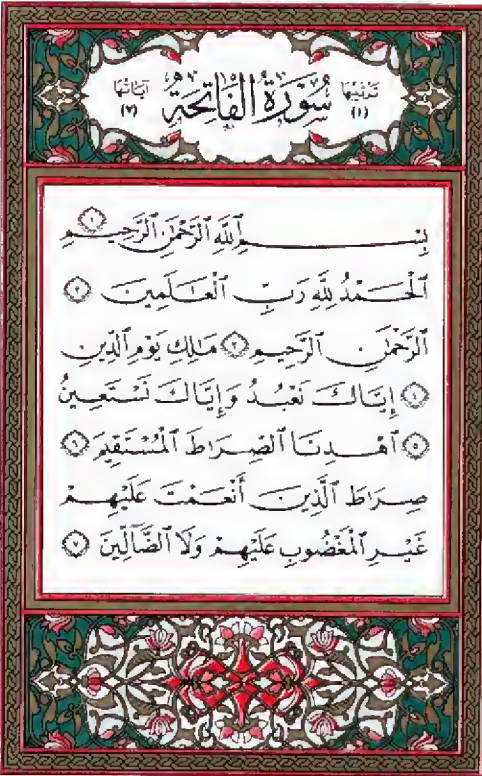 ترتيبها
(١)
سُورَةُ الفَاتِحَةِ
آياتها
(٧)
بِسْمِ ٱللَّهِ ٱلرَّحْمَٰنِ ٱلرَّحِيمِ ١
ٱلْحَمْدُ لِلَّهِ رَبِّ ٱلْعَٰلَمِينَ ٢
ٱلرَّحْمَٰنِ ٱلرَّحِيمِ ٣ مَٰلِكِ يَوْمِ ٱلدِّينِ
٤ إِيَّاكَ نَعْبُدُ وَإِيَّاكَ نَسْتَعِينُ
٥ ٱهْدِنَا ٱلصِّرَاطَ ٱلْمُسْتَقِيمَ ٦
صِرَاطَ ٱلَّذِينَ أَنْعَمْتَ عَلَيْهِمْ
غَيْرِ ٱلْمَغْضُوبِ عَلَيْهِمْ وَلَا ٱلضَّآلِّينَ ٧